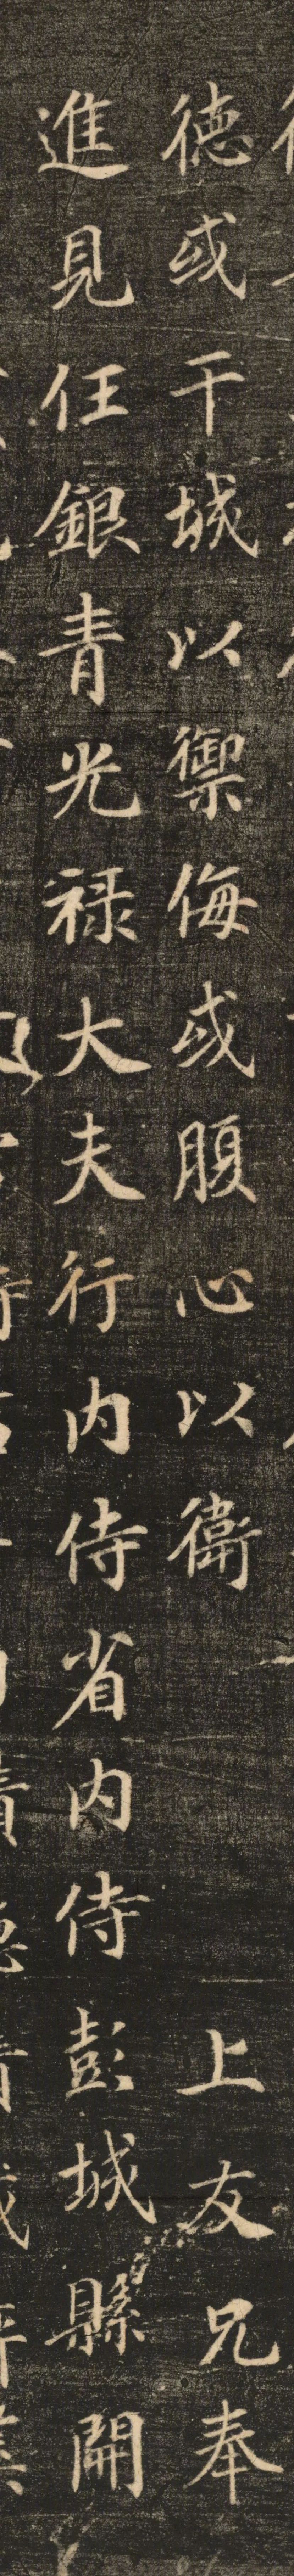 德或干城以禦侮或腹心以衛　上友兄奉
進見任銀青光禄大夫行内侍省内侍彭城縣開